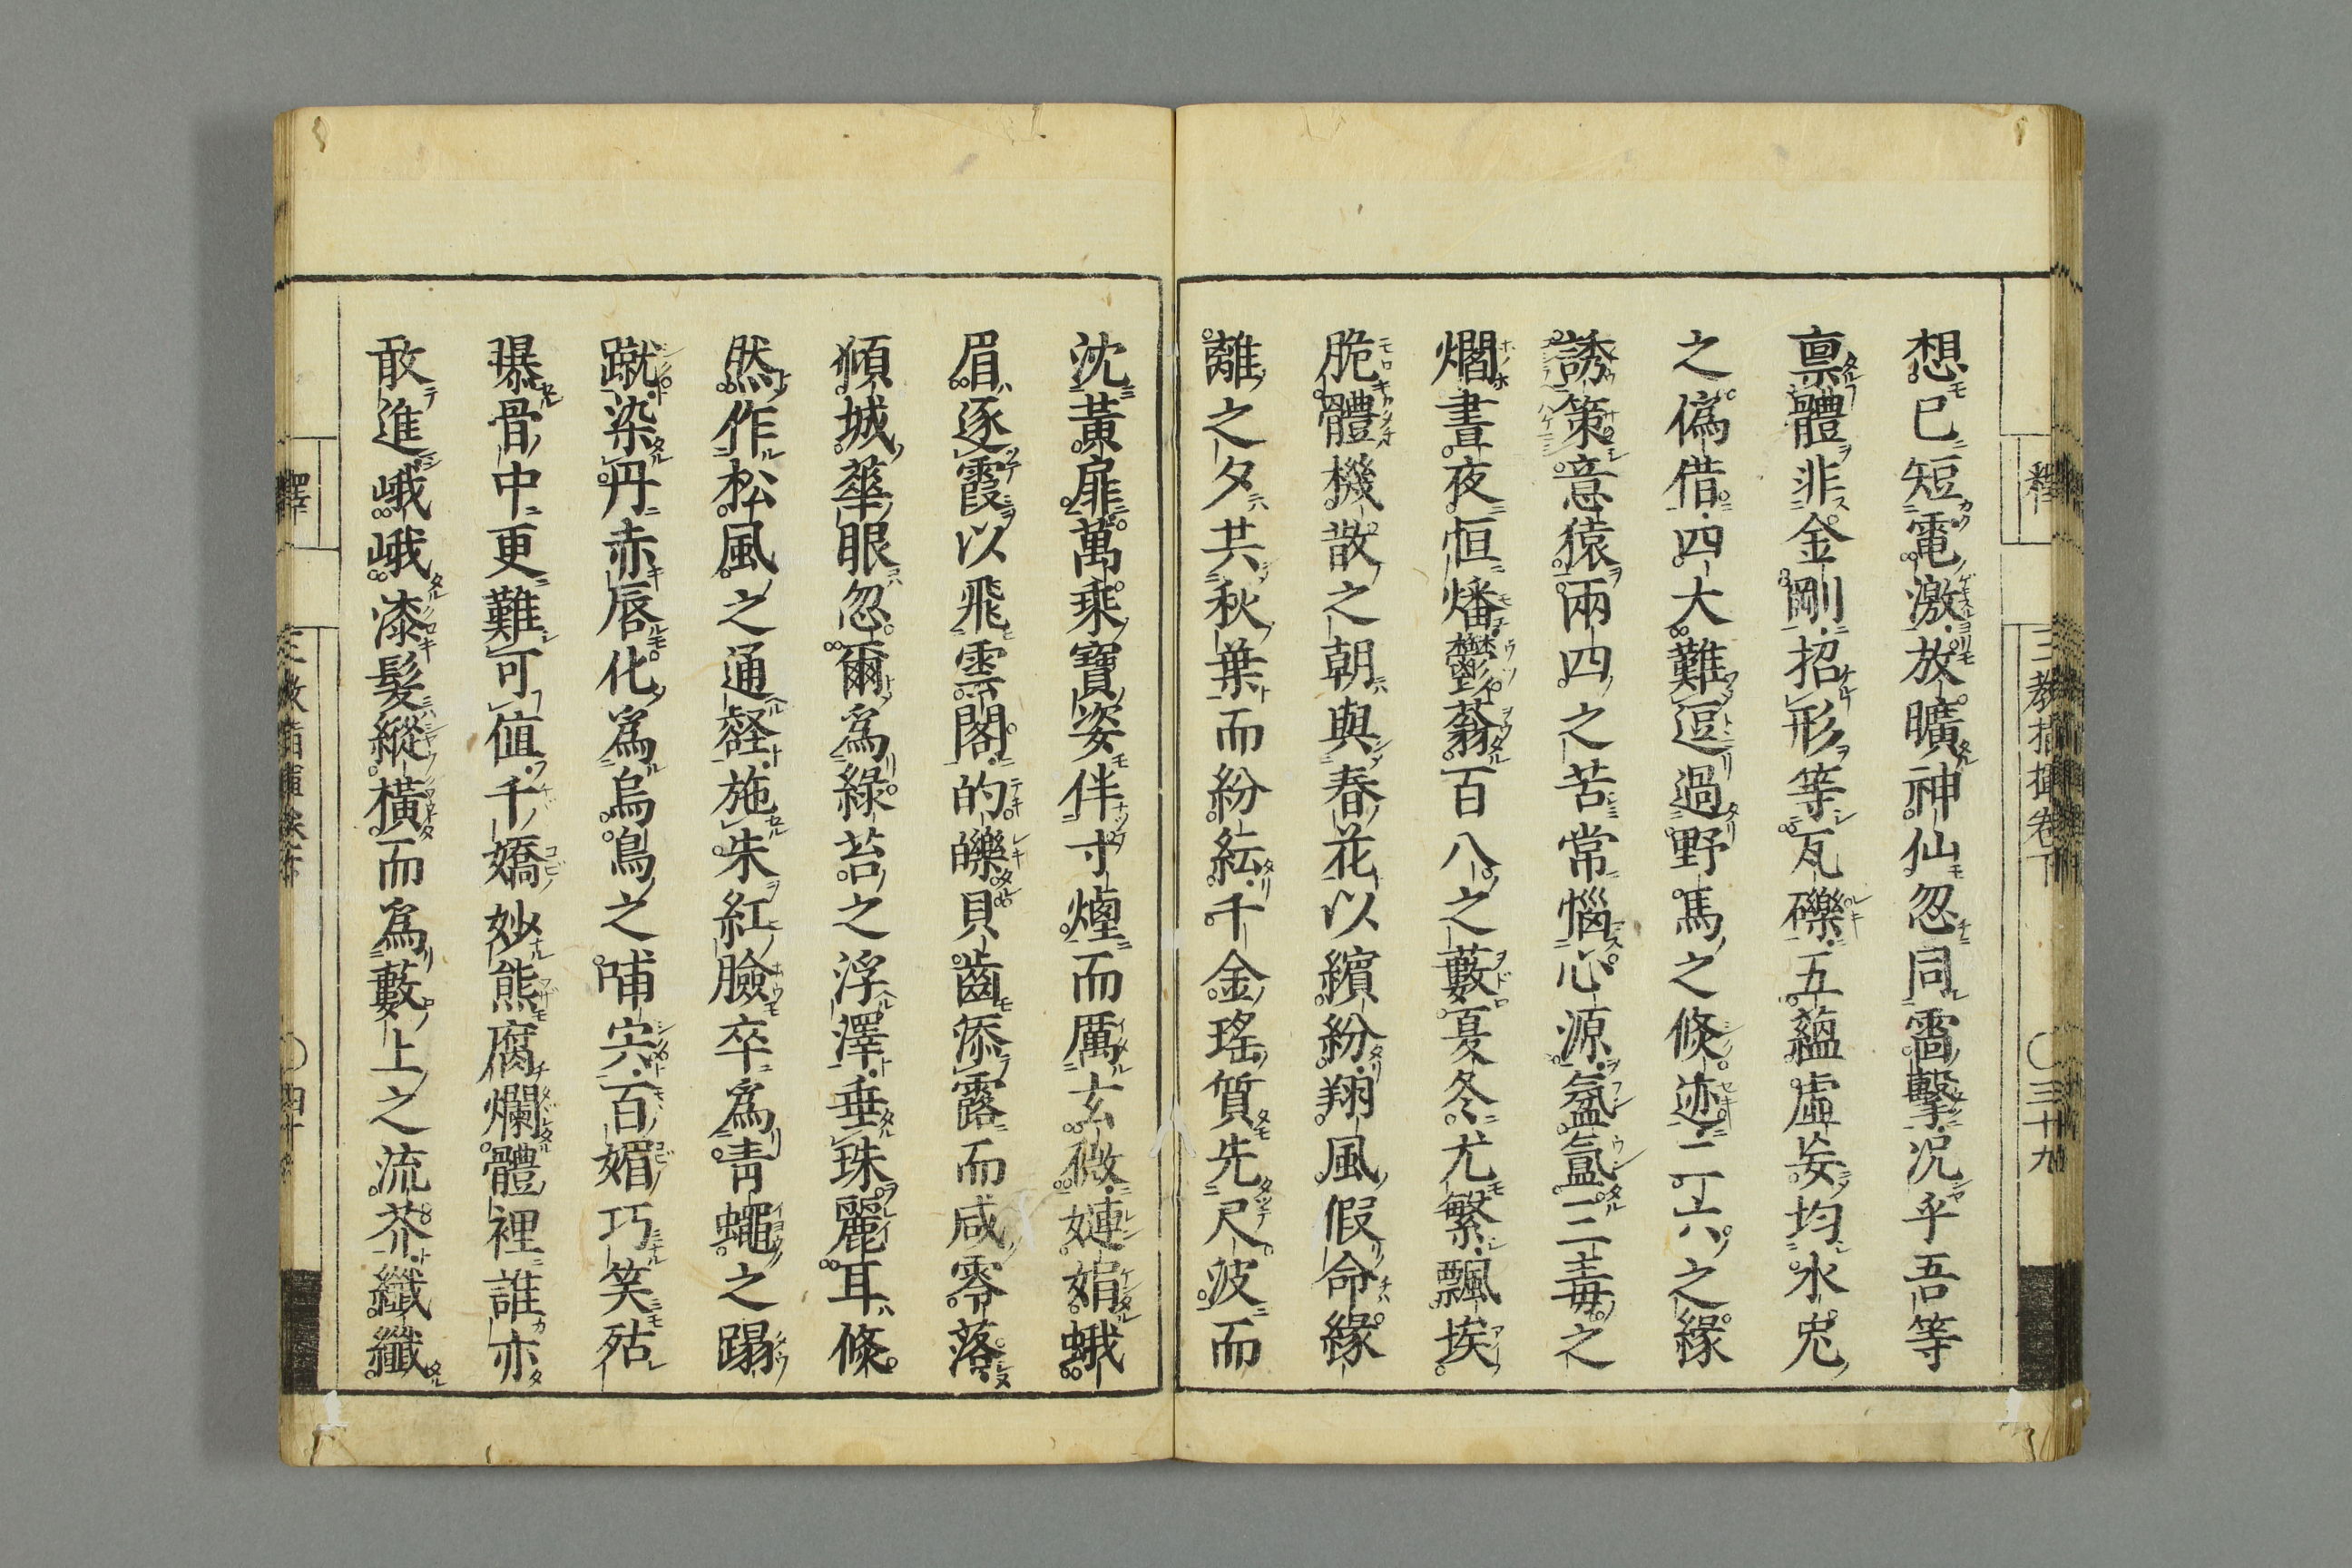 三教指揮卷下
釋
三十九
想已短電激放曠神仙忽同雷擊况乎吾等
禀體非金剛招形等瓦礫五蘊虛妄均水兎
之僞借四大難逗過野馬之倏迹二六之緣
誘策意猿兩四之苦常惱心源氛氳三毒之
爓晝夜恒燔鬱蓊百八之藪夏冬尤繁飄埃
脆體機散之朝與春花以繽紛翔風假命緣
離之夕共秋葉而紛紜千金瑤質先尺波而
沈黃扉萬乘寶姿伴寸煙而厲玄微嫌娟蛾
眉逐霞以飛雲閣的皪貝齒添露而咸零落
傾城華眼忽爾爲綠苔之浮澤垂珠麗耳倏
然作松風之通壑施朱紅臉卒爲靑蠅之蹋
蹴染丹赤唇化爲烏鳥之哺宍百媚巧笑殆
曝骨中更難可値千嬌妙態腐爛體裡誰亦
敢進峨峨漆髮縱橫而爲藪上之流芥纖纖
釋